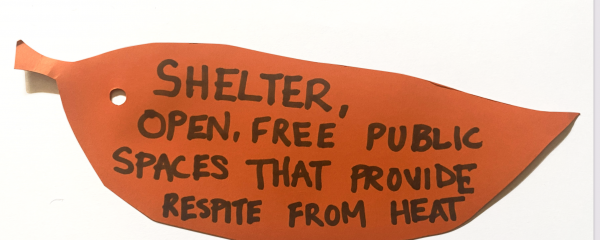 SHELTER,
OPEN, FREE PUBLIC
SPACES THAT PROVIDE
RESPITE FROM HEAT